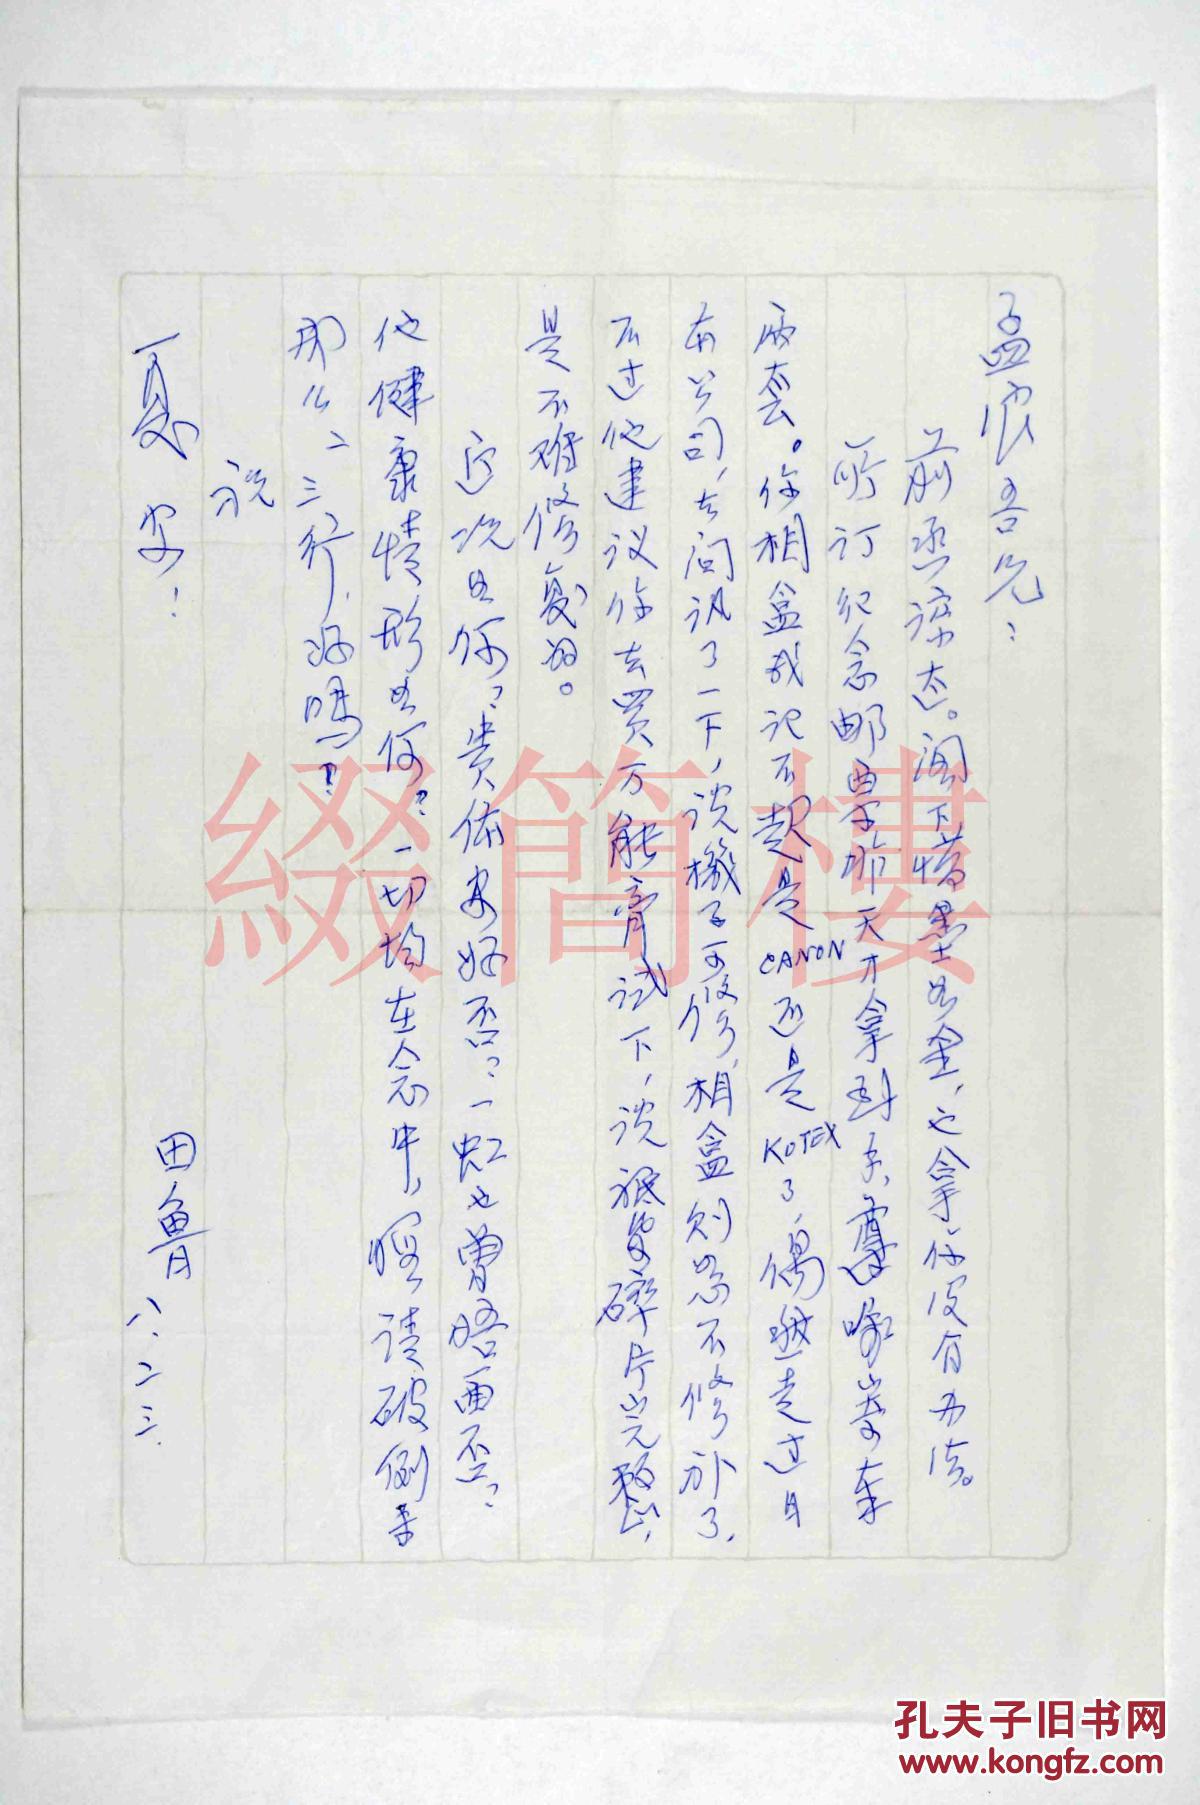 孟浪吾兄：
前函谅达。阁下惜墨如金，也拿你没有办法。
所订纪念邮票昨天才拿到手，遵嘱寄奉
两套。你相盒我记不起是CANON还是KOTEX了，偶然走过日
本公司，去问讯了一下，说機子可修，相盒则恐不修补了，
不过他建议你去買万能膏试下，说祗要碎片完整，
是不难修复的。
近况如何？贵体安好否？一虹也曾晤面否？
他健康情形如何？一切均在念中，暇请破例来
那么二三行，好吗？
祝
夏安！
田鲁 八.二三.
綴簡樓
孔夫子旧书网
www.kongfz.com